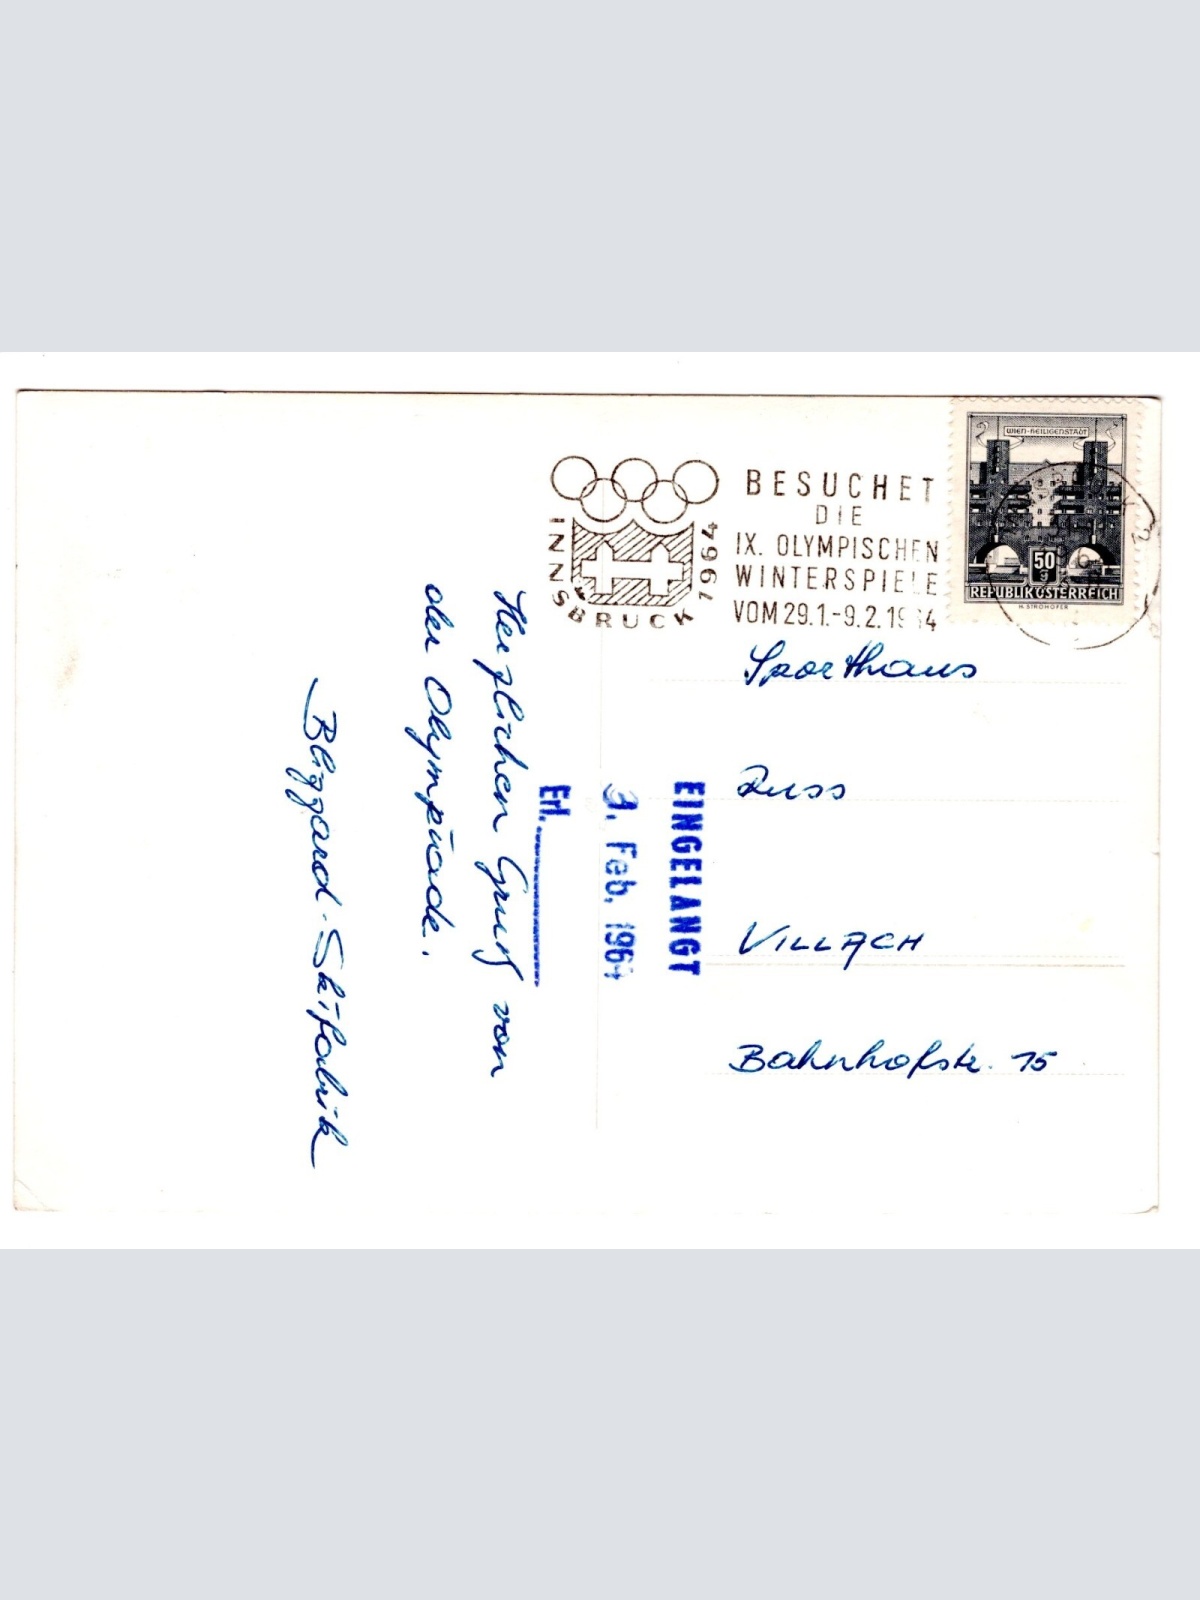 INNSBRUCK 1964
BESUCHET
DIE
IX. OLYMPISCHEN
WINTERSPIELE
VOM 29.1.-9.2.1964
WIEN-HEILIGENSTADT
50
g
REPUBLIK ÖSTERREICH
H. STROHOFER
Sporthaus
Russ
VILLACH
Bahnhofstr. 15
EINGELANGT
Feb. 1964
Erl.
Herzlichen Gruß von
der Olympiade.
Blizzard-Skifabrik